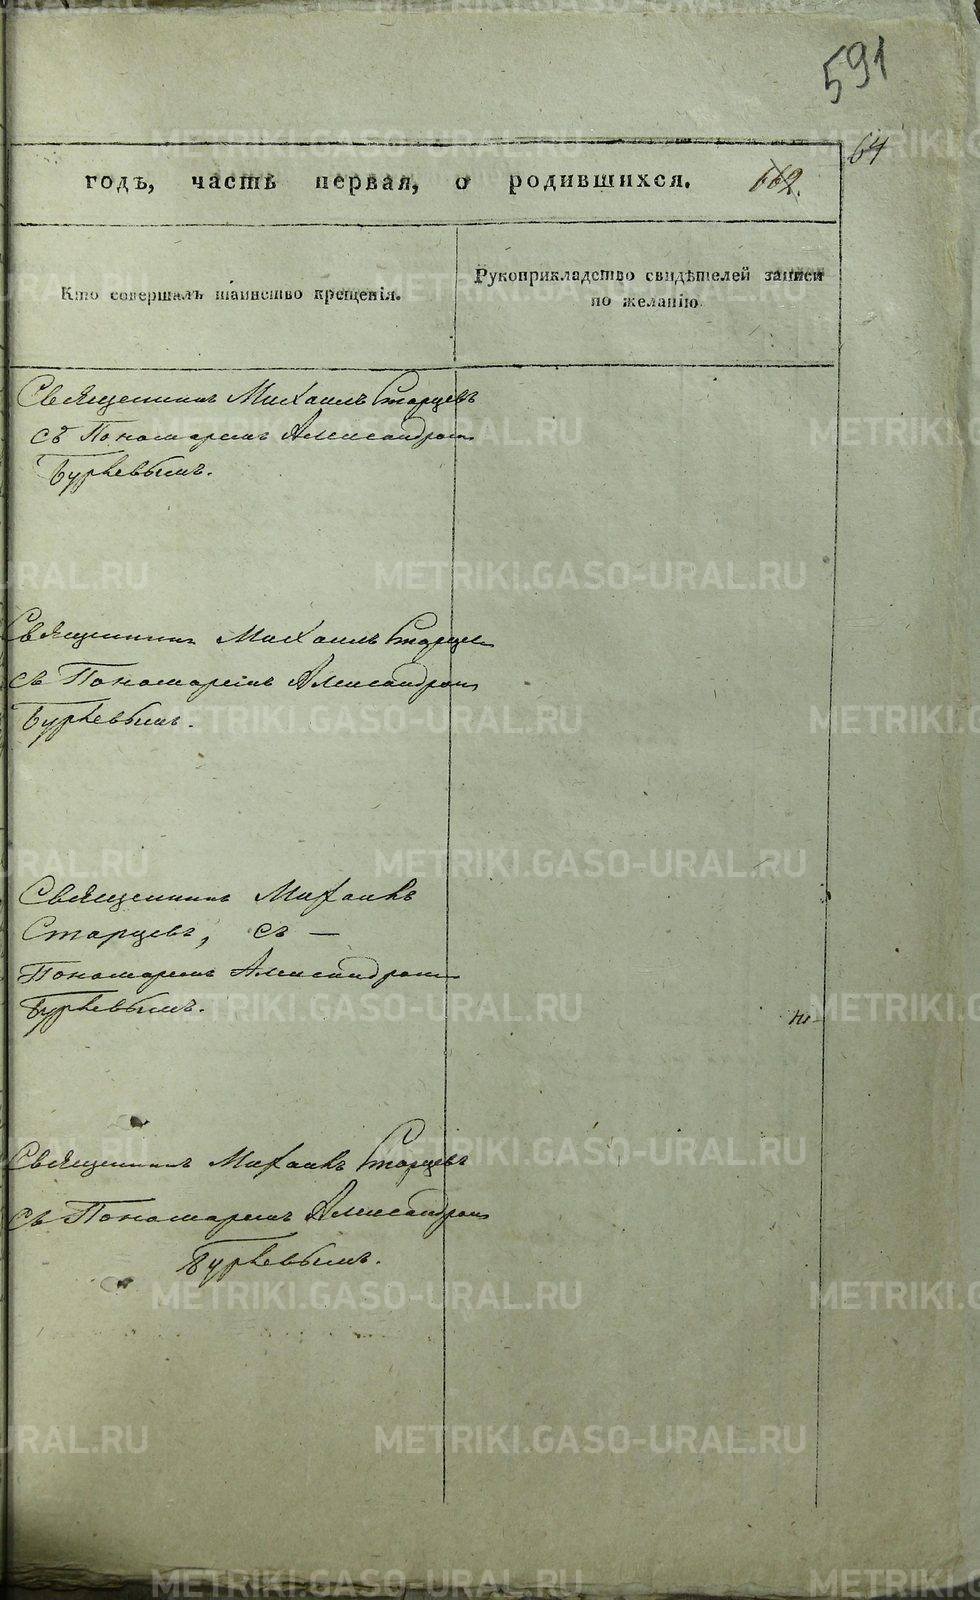 591
64
годъ, часть первая, о родившихся.
Кто совершалъ таинство крещенія.
Рукоприкладство свидѣтелей записи
по желанію
Священникъ Михаилъ Старцевъ
съ Пономаремъ Александромъ
Бурѣевымъ.
Священникъ Михаилъ Старцев
съ Пономаремъ Александромъ
Бурѣевымъ.
Священникъ Михаилъ
Старцевъ, съ —
Пономаремъ Александромъ
Бурѣевымъ.
Священникъ Михаилъ Старцевъ
съ Пономаремъ Александромъ
Бурѣевымъ.
METRIKI.GASO-URAL.RU